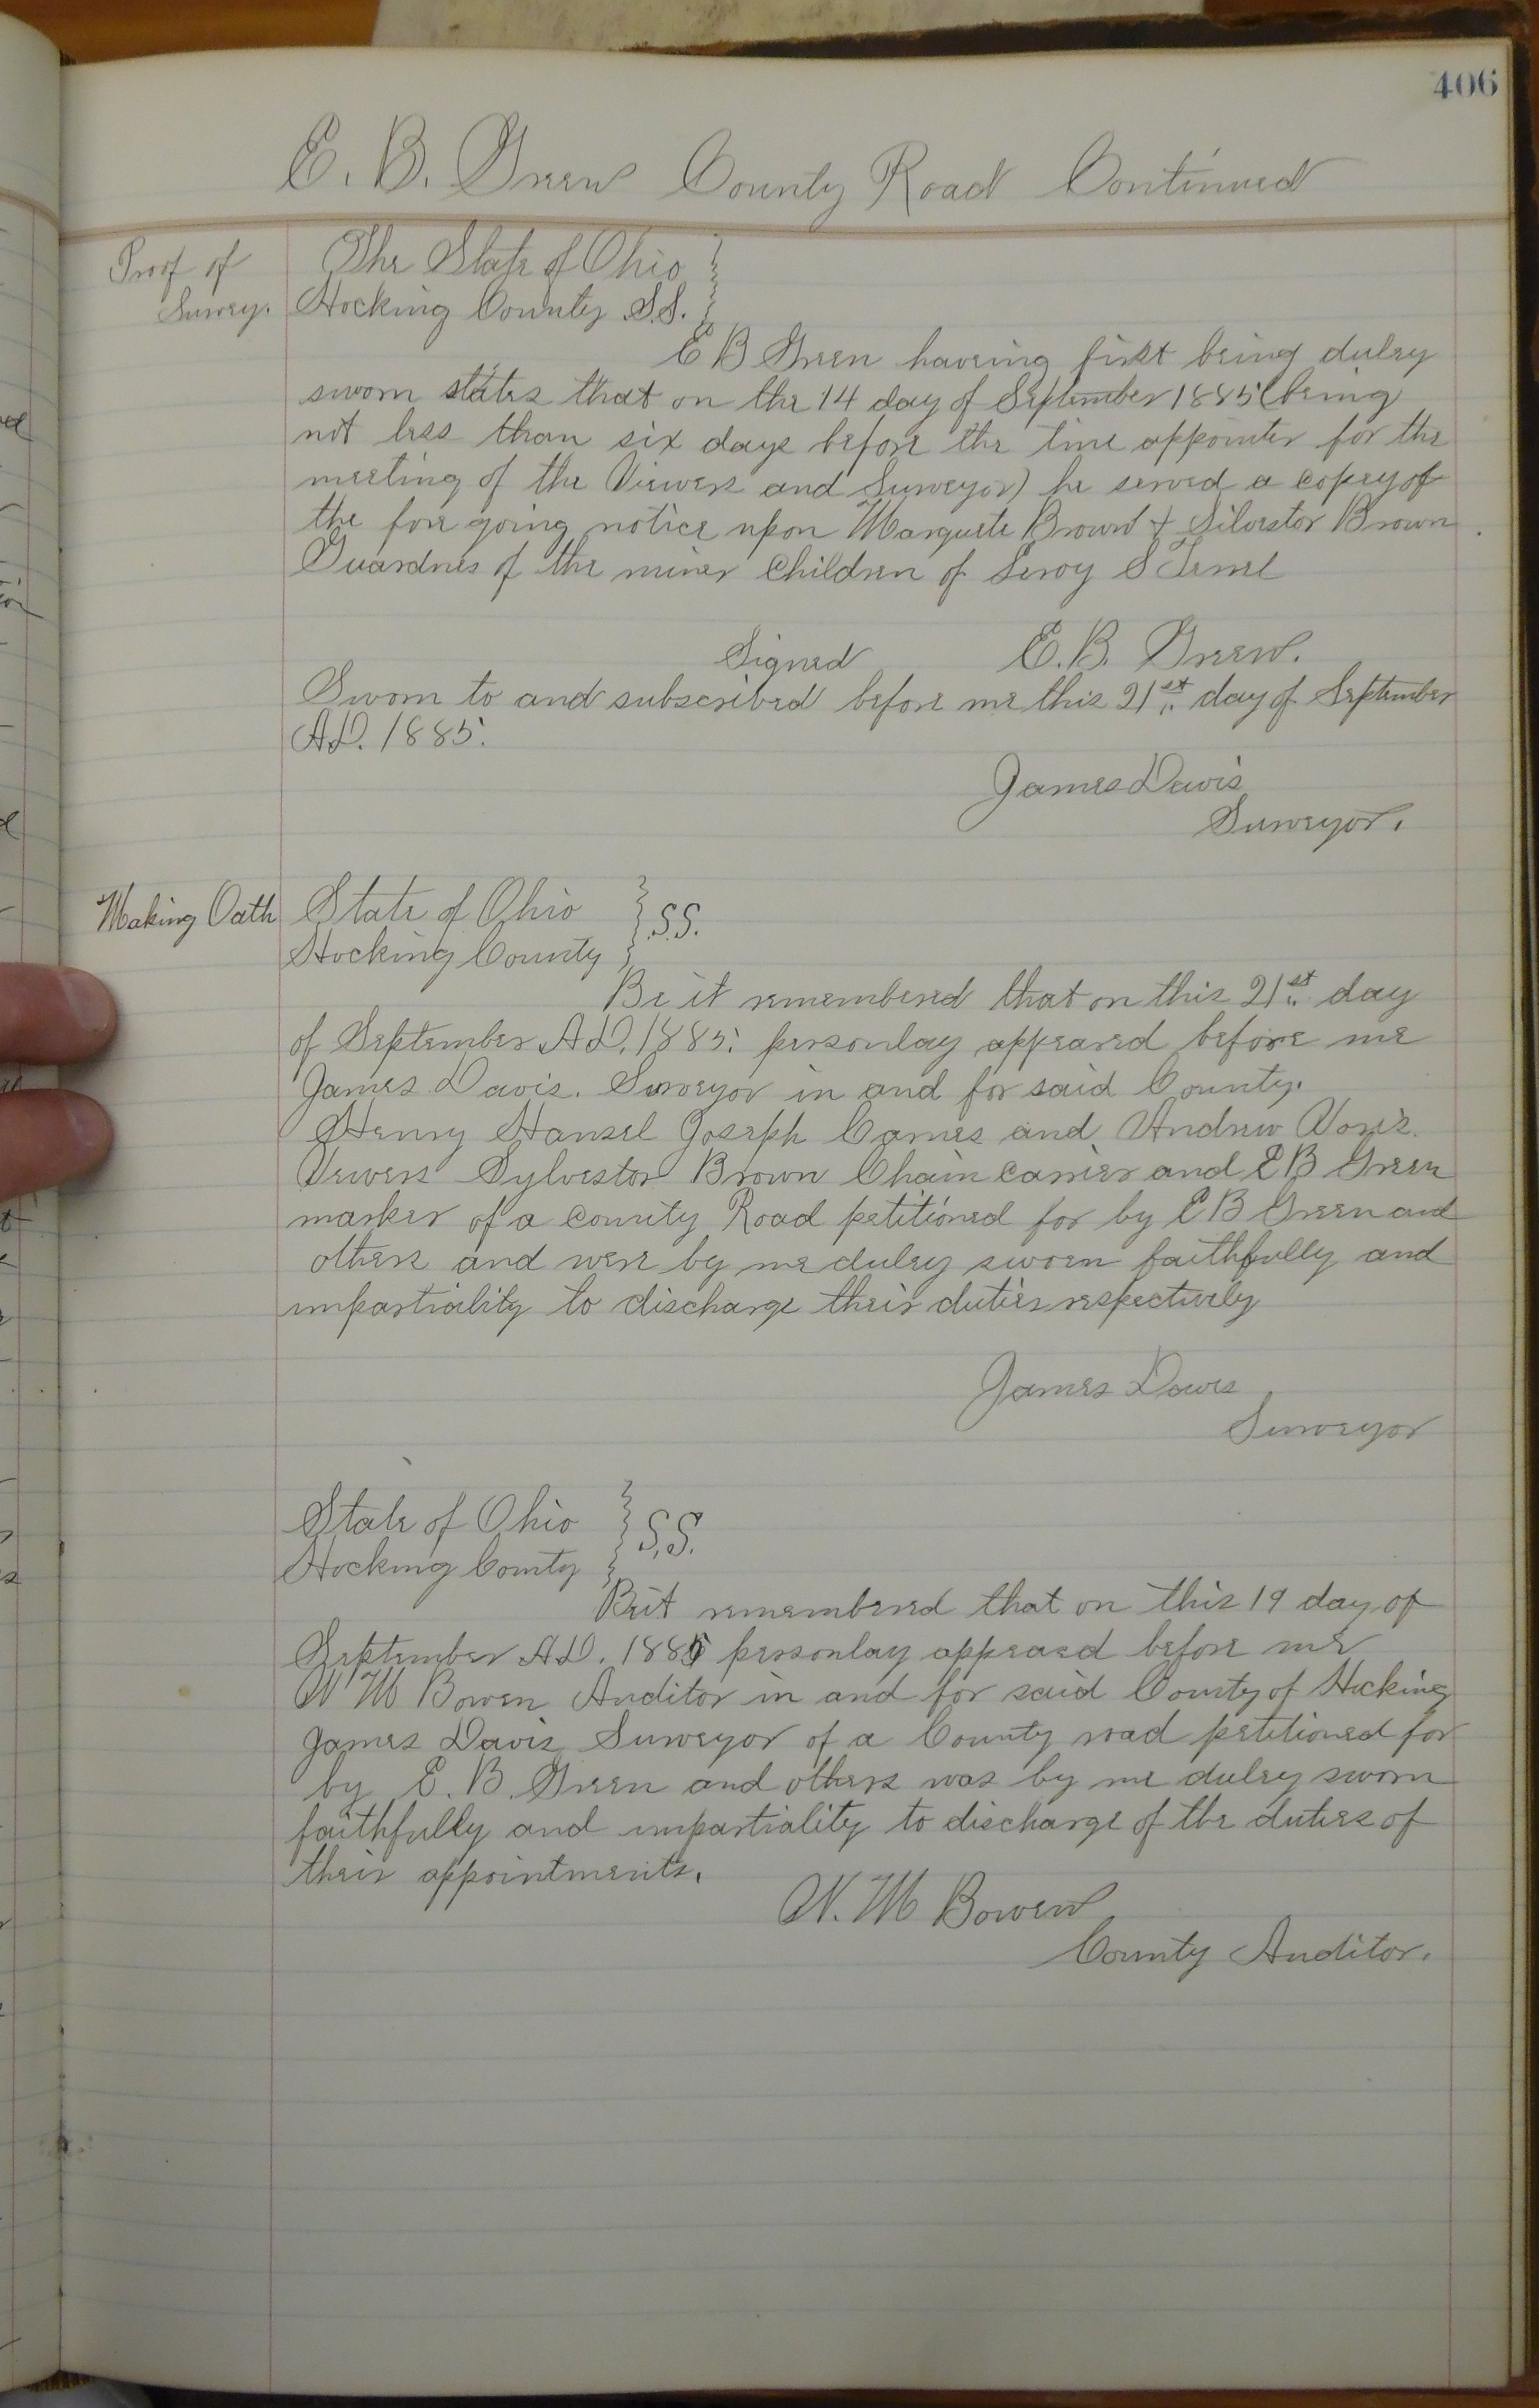 406
E. B. Green County Road Continued
Proof of
Survey.
The State of Ohio
Hocking County S.S.
E B Green having first being duley
sworn states that on the 14 day of September 1885 (being
not less than six days before the time appointer for the
meeting of the Viewers and Surveyor) he served a copey of
the fore going notice upon Marguete Brown & Silvestor Brown
Guardnes of the miner Children of Leroy S
Signed E. B. Green.
Sworn to and subscribed before me this 21st day of September
A.D. 1885.
James Davis
Surveyor.
Making Oath
State of Ohio
Hocking County
S.S.
Be it remembered that on this 21st day
of September A.D. 1885. personlay appeared before me
James Davis. Surveyor in and for said County.
Henry Hansel Joseph Carnes and Andrew
Vewers Sylvestor Brown Chain carrier and E B Green
marker of a county Road petitioned for by E B Green and
others and were by me duley sworn faithfully and
impartiality to discharge their duties respectively
James Davis
Surveyor
State of Ohio
Hocking County
S.S.
Beit remembered that on this 19 day of
September A.D. 1885 personlay appeard before me
W M Bowen Auditor in and for said County of Hocking
James Davis Surveyor of a County road petitioned for
by E. B. Green and others was by me duley sworn
faithfully and impartiality to discharge of the duties of
their appointments.
W. M Bowen
County Auditor.